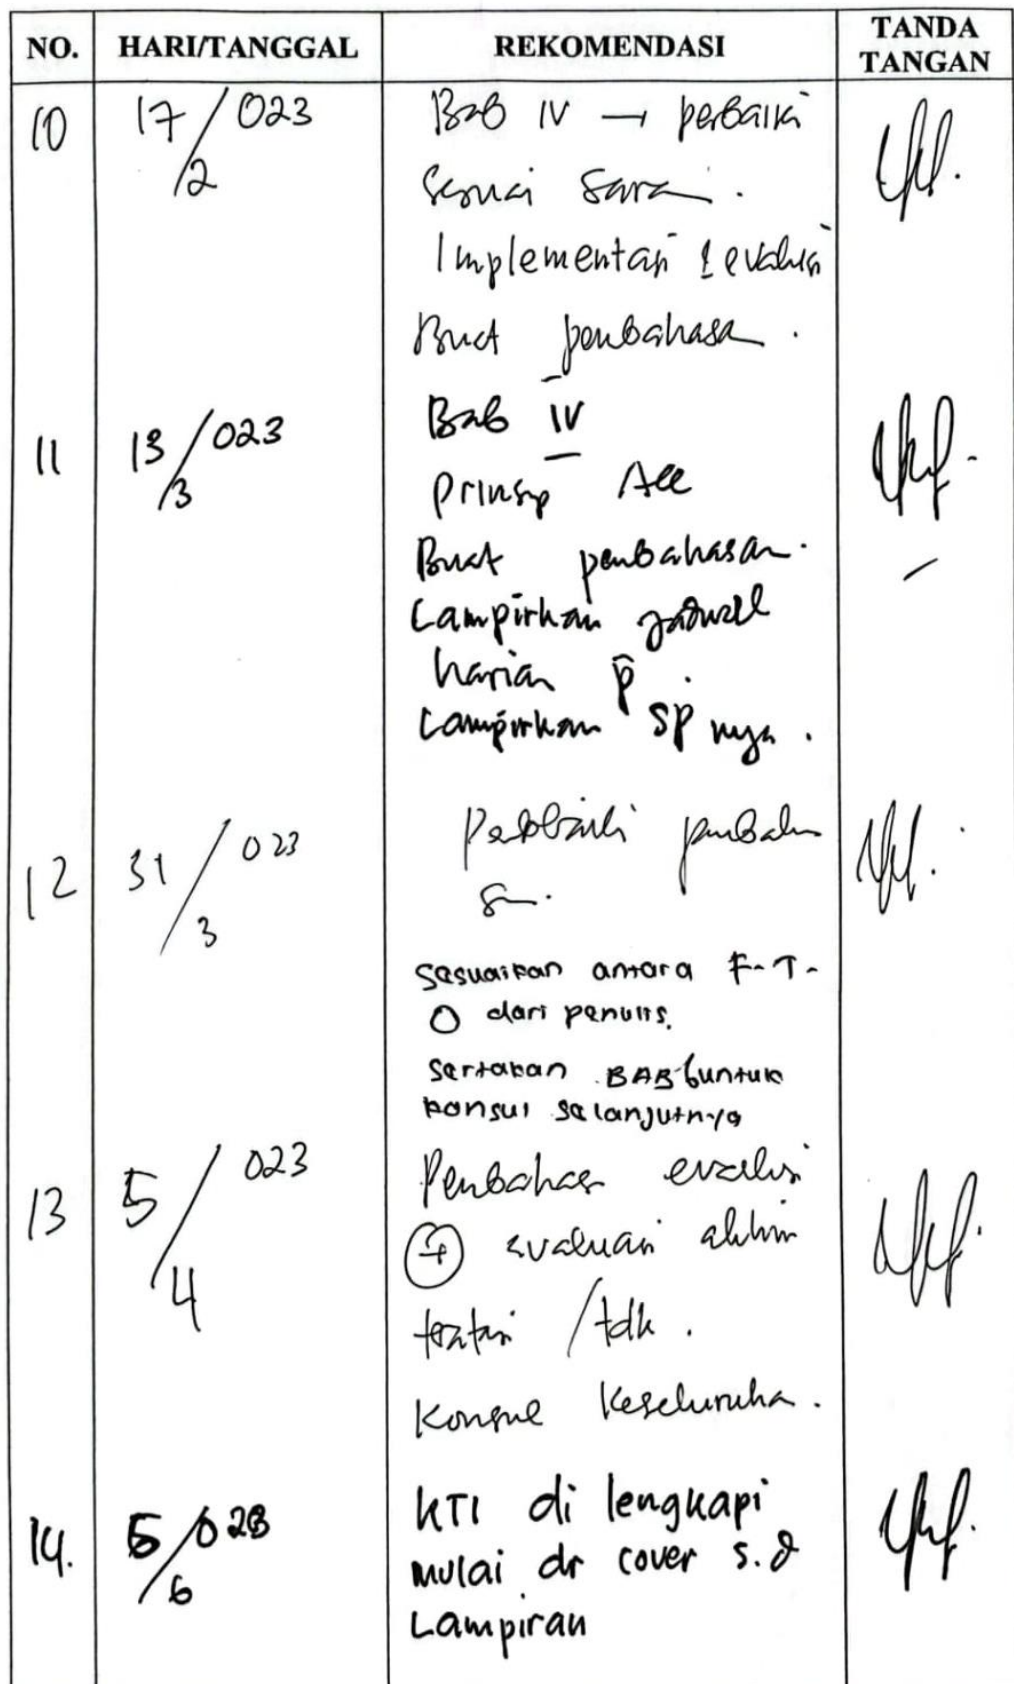 NO. HARI/TANGGAL REKOMENDASI TANDA TANGAN
10 17/2 023 Bab IV → perbaiki
sesuai sara .
Implementasi & evaluasi
Buat pembahasa .
11 13/3 023 Bab IV
Prinsip Acc
Buat pembahasan.
Lampirkan jadwal
harian p
Lampirkan SP nya .
12 31/3 023 Perbaiki pembaha
san.
sesuaikan antara F-T-
O dari penulis.
sertakan BAB 6 untuk
konsul selanjutnya
13 5/4 023 Pembahas evaluasi
evaluasi akhir
teratasi / tdk .
Konsul Keseluruha .
14. 5/6 023 KTI di lengkapi
mulai dr cover s.d
Lampiran